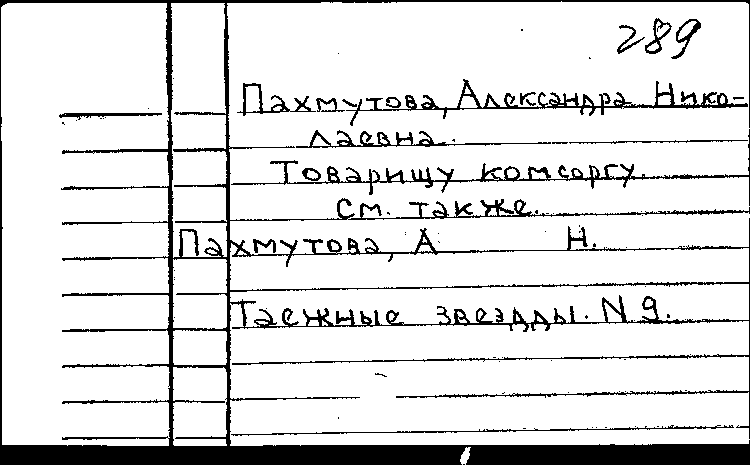 289
Пахмутова, Александра Нико-
лаевна.
Товарищу комсоргу.
См. также.
Пахмутова, А Н.
Таежные звездды. N 9.